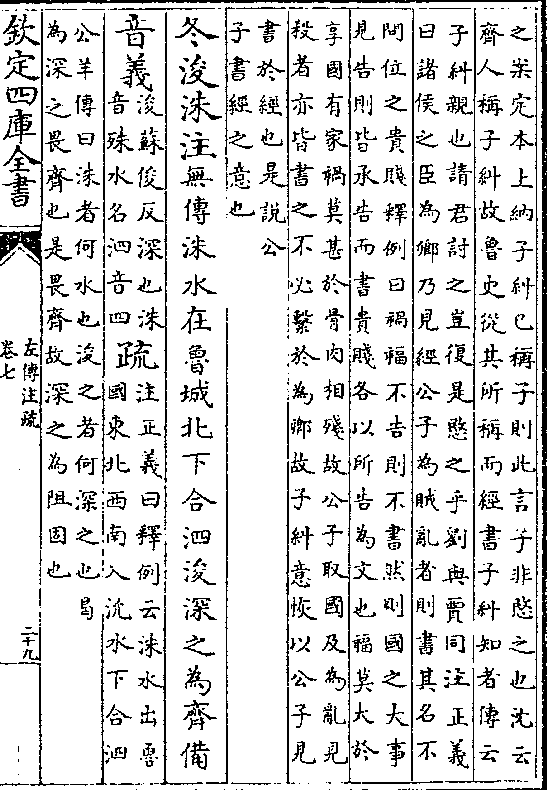 之案定本上納子糾已稱子則此言子非愍之也沈云
齊人稱子糾故魯史從其所稱而經書子糾知者傳云
子糾親也請君討之豈復是愍之乎劉與賈同注正義
曰諸侯之臣為卿乃見經公子為賊亂者則書其名不
問位之貴賤釋例曰禍福不告則不書然則國之大事
見告則皆承告而書貴賤各以所告為文也福莫大於
享國有家禍莫甚於骨肉相殘故公子取國及為亂見
殺者亦皆書之不必繫於為卿故子糾意恢以公子見
書於經也是說公
子書經之意也
冬浚洙注無傳洙水在魯城北下合泗浚深之為齊備
音義浚蘇俊反深也洙
音殊水名泗音四
疏注正義曰釋例云洙水出魯
國東北西南入沇水下合泗
公羊傳曰洙者何水也浚之者何深之也曷
為深之畏齊也是畏齊故深之為阻固也
欽定四庫全書
左傳注疏
卷七
二十九